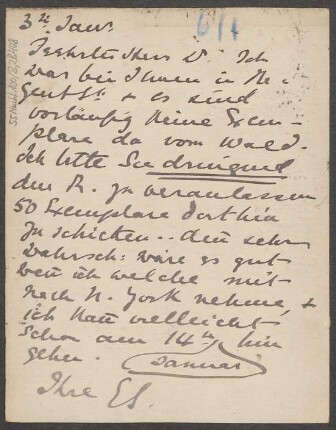 3ten Janr.
6/1
Geehrter Herr Dr. Ich
war bei Ihnen in Re-
gent St. & es sind
vorläufig keine Exem-
plare da vom Wald.
Ich bitte Sie dringend
den R. zu veranlassen
50 Exemplare dorthin
zu schicken.. denn sehr
wahrsch: wäre es gut
wenn ich welche mit
nach N. York nehme, &
ich kann vielleicht
schon am 14ten hin
gehen. Januar
Ihre ES.